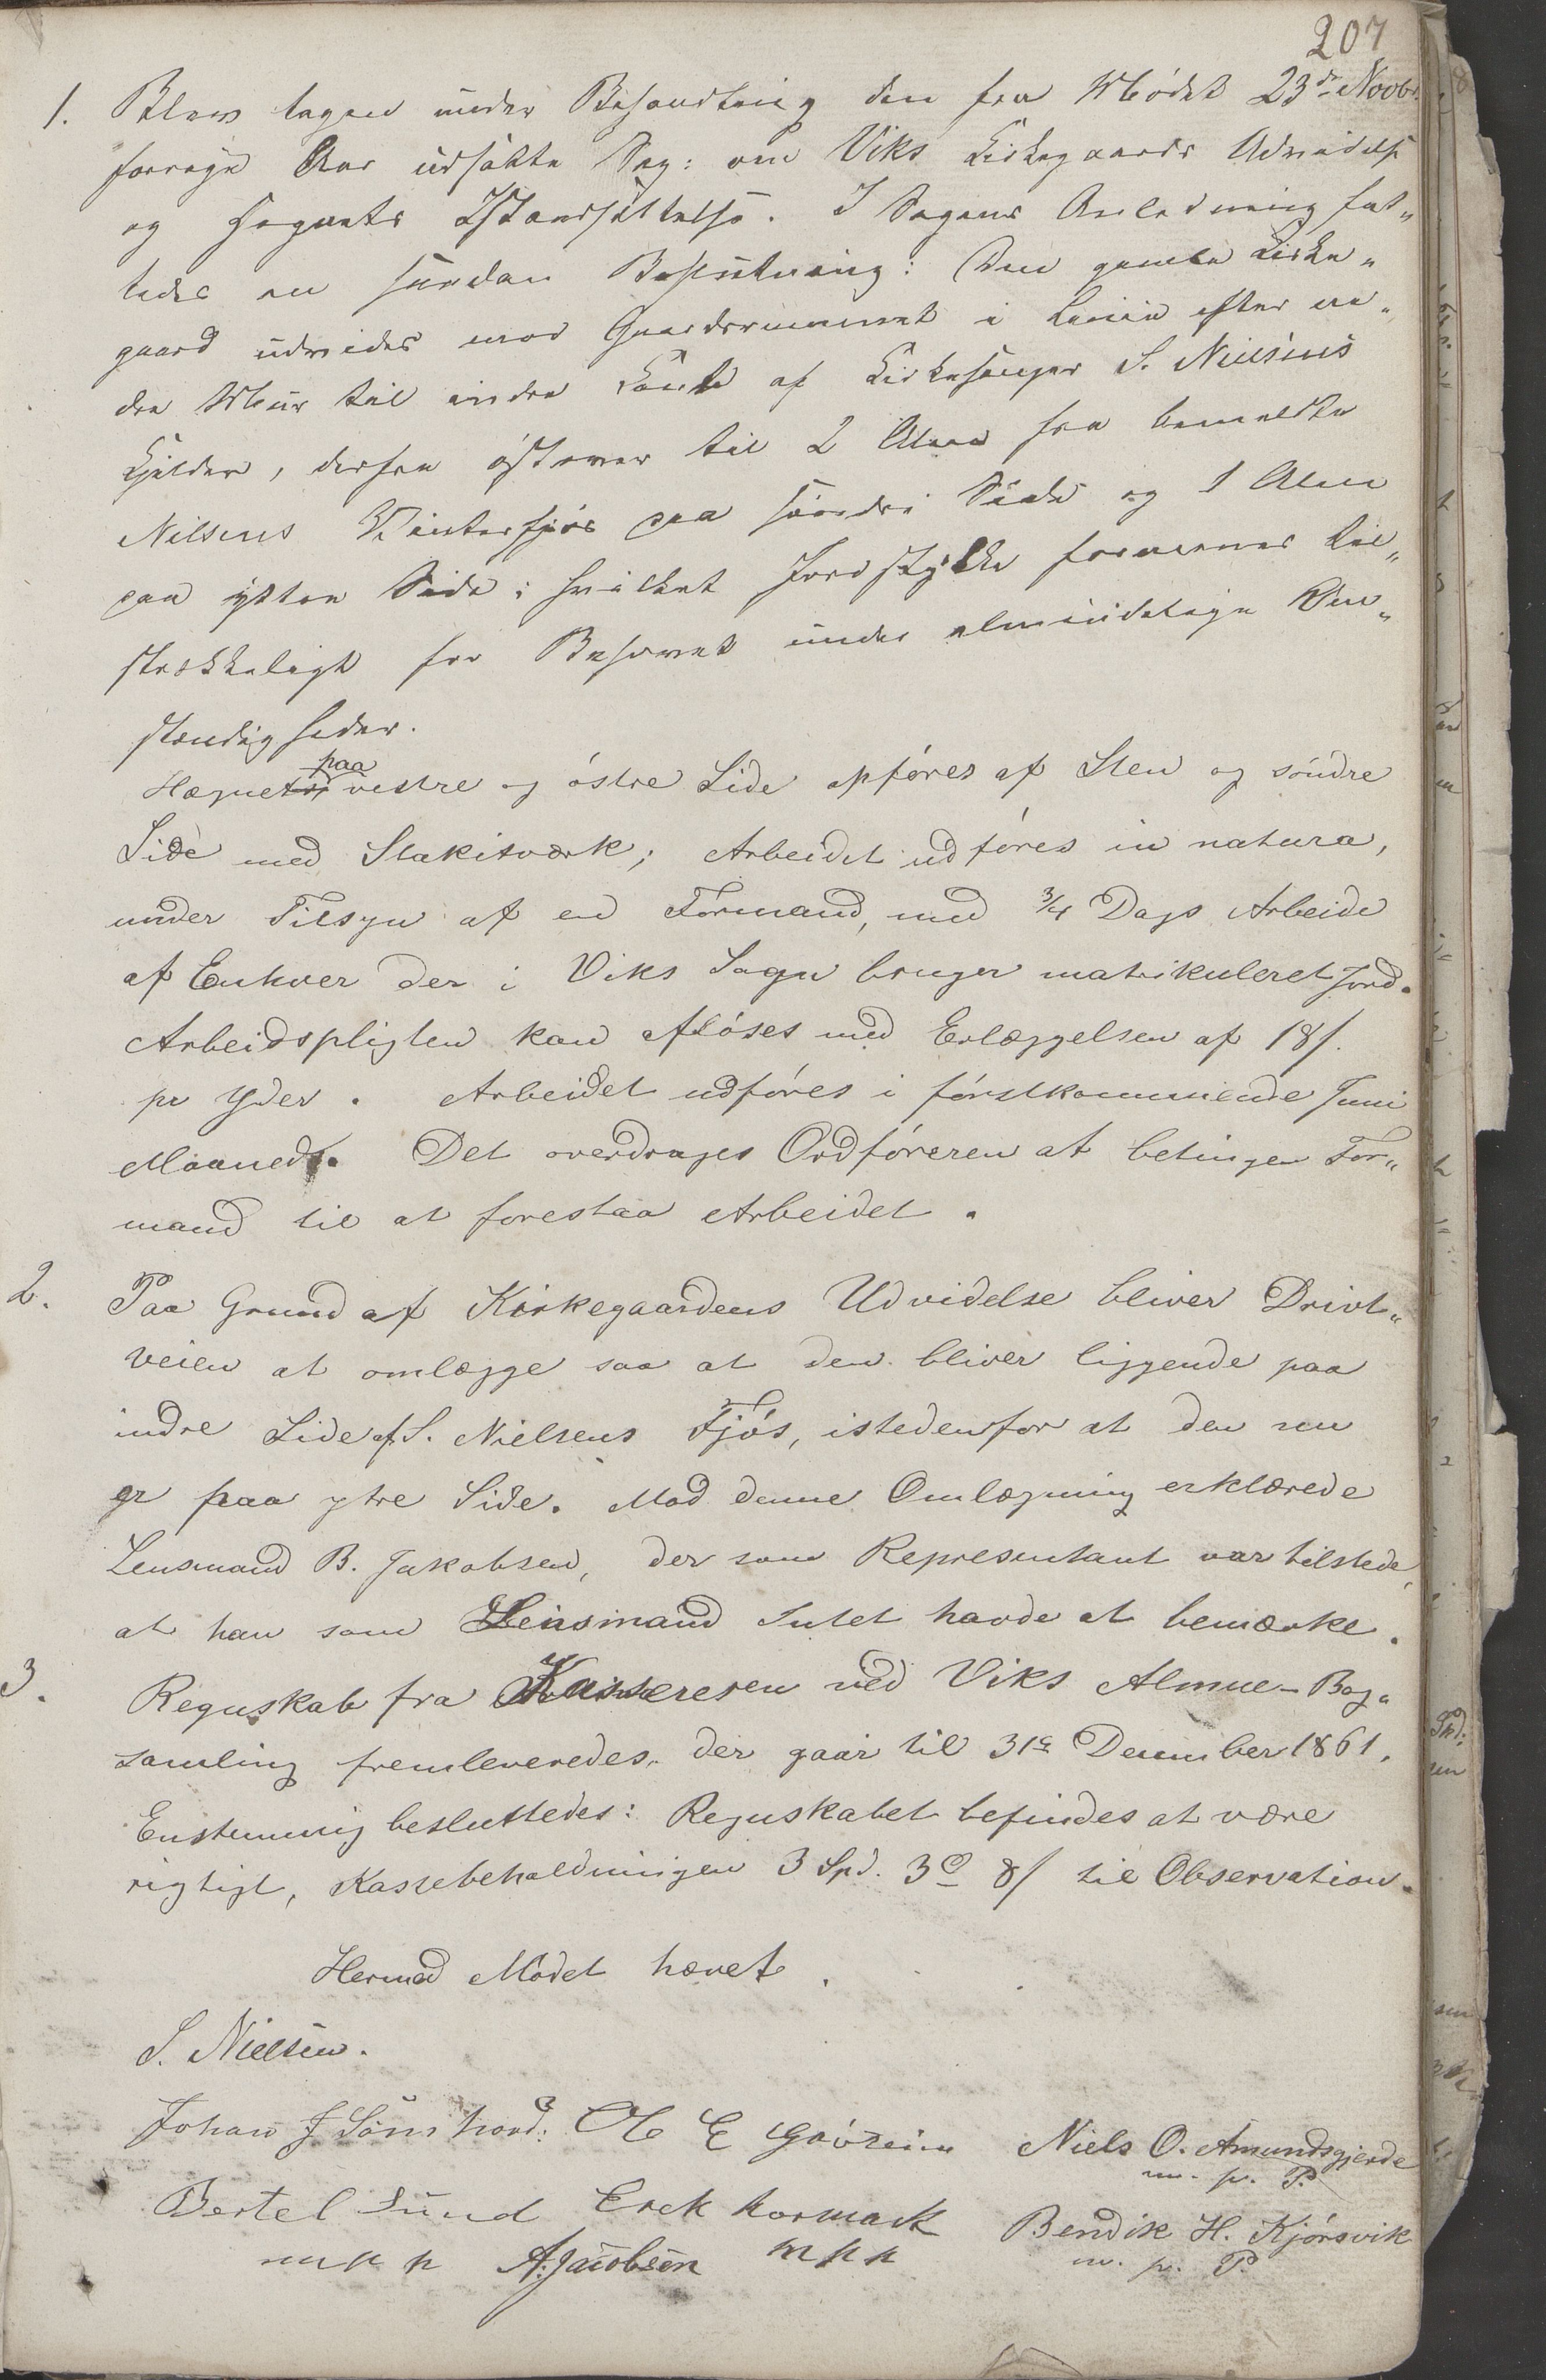 207
1. Blev tagen under Behandling den fra Mödet 23de Novbr.
forrige Aar udsatte Sag: om Viks Kirkegaards Udvidelse
og Hegnets Istandsættelse. I Sagens Anledning fat„
tedes en saadan Beslutning: Den gamle Kirke„
gaard udvides mod Gaardsrummet i Linie efter ne„
dre Muur til indre Kant af Kirkesanger S. Nielsens
Kjelder, derfra östover til 2 Alen fra bemeldte
Nilsens Vinterfjös paa söndre Side og 1 Alen
paa ÿttre Side; hvilket Jordstÿkke formenes til„
strækkeligt for Behovet under almindelige Om„
stendigheder.
paa
Hægnet vestre og östre Side opföres af Sten og söndre
Side med Stakitværk; Arbeidet udföres in natura,
under Tilsyn af en Formand, med 3/4 Dags Arbeide
af Enhver der i Viks Sogn bruger matrikuleret Jord.
Arbeidspligten kan aflöses med Erlæggelsen af 18 s.
pr Yder. Arbeidet udföres i förstkommende Juni
Maaned. Det overdrages Ordföreren at betinge For„
mand til at forestaa Arbeidet.
2. Paa Grund af Kirkegaardens Udvidelse bliver Drivt„
veien at omlægge saa at den bliver liggende paa
indre Side af S. Nielsens Fjös, istedenfor at den nu
er paa ytre Side. Mod denne Omlægning erklærede
Lensmand B. Jakobsen, der som Representant var tilstede,
at han som Lensmand Intet havde at bemærke.
3. Regnskab fra Kassereren ved Viks Almue-Bog„
samling fremleveredes, der gaar til 31te December 1861.
Enstemmig besluttedes: Regnskabet befindes at være
rigtigt, Kassebeholdningen 3 Spd. 3 O 8 s til Observation.
Hermed Mödet hævet.
S. Nielsen.
Johan J Sömhovd: Ole E Gövrein Niels O. Amundsgjerde
m. p. P.
Bertel Sund Erek hormark Bendik H. Kjörsvik
m p p A. Jacobsen m p p m. p. P.